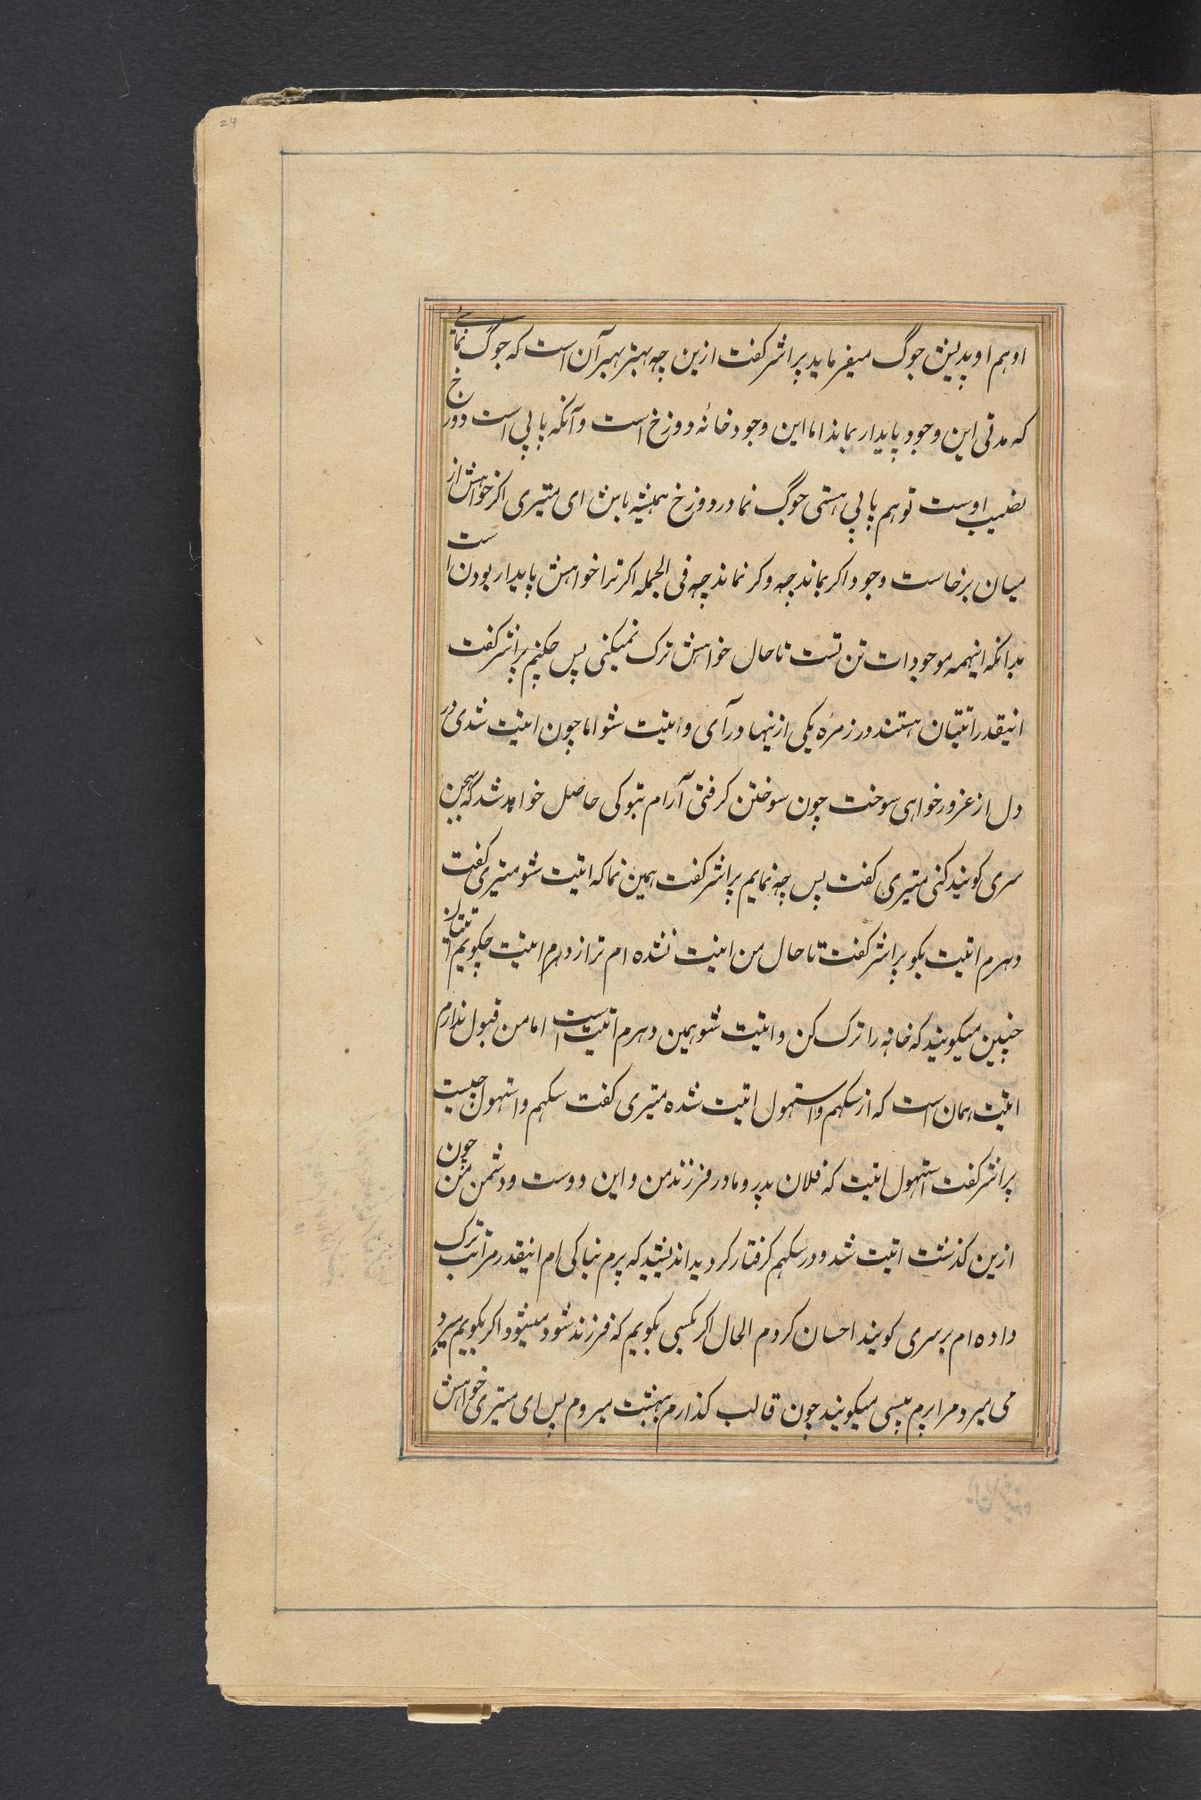 24
او هم اوپدیش جوگ میفرماید پراشر کفت ازین چه بهتر بهتر آن است که جوگ نمائے
که مدتی این وجود پایدار بماند اما این وجود خانهٔ دوزخ است و آنکه پاپی است دوزخ
نصیب اوست تو هم پاپی هستی جوگ نما در دوزخ همیشه باش ای متیری اکر خواهش از
میان برخاست وجود اکر بماند چه وکر نماند چه فی الجمله اکر ترا خواهش پایدار بودن است
بدانکه اینهمه موجودات تن تست تا حال خواهش ترک نمیکنی پس چکنم پراشر کفت
اینقدر اتیتان هستند در زمرهٔ یکی ازینها در آی و اتیت شو اما چون اتیت شدی در
دل از غرور خواهی سوخت چون سوختن کرفتی آرام بتو کی حاصل خواهد شد که بهجن
سری کوبند کنی متیری کفت پس چه نمایم پراشر کفت همین نما که اتیت شو متیری کفت
دهرم اتیت بکو پراشر کفت تا حال من اتیت نشده ام ترا از دهرم اتیت چکویم اتیتان
چنین میکویند که خانه را ترک کن و اتیت شو همین دهرم اتیت است اما من قبول ندارم
اتیت همان است که از سکهم و استهول اتیت شده متیری کفت سکهم و استهول چیست
پراشر کفت استهول اتیت که فلان پدر و مادر فرزند من و این دوست و دشمن من چون
ازین کذشت اتیت شد و در سکهم کرفتار کردید اندیشید که پرم بتاکی ام اینقدر مراتب ترک
داده ام بر سری کوبند احسان کردم الحال اکر بکسی بکویم که فرزند شود میشود اکر بکویم بمیرد
می میرد مرا پرم تپسی میکویند چون قالب کذارم بهشت میروم پس ای متیری خواهش